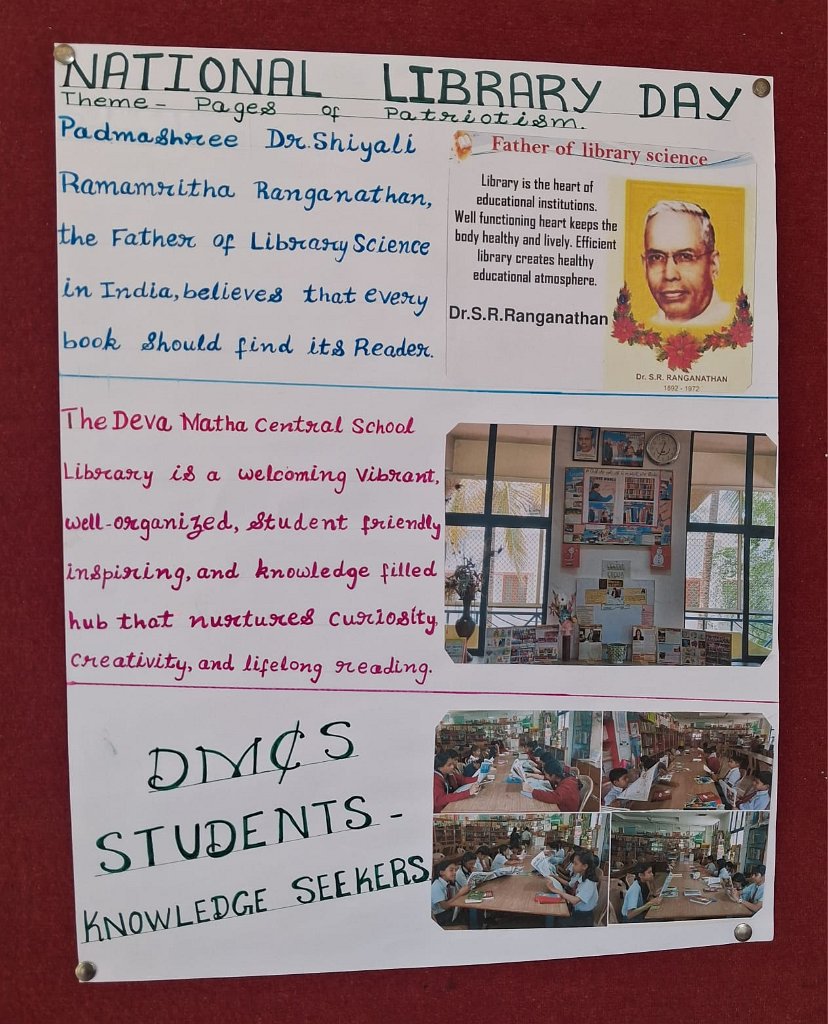 NATIONAL LIBRARY DAY
Theme - Pages of Patriotism.
Padmashree Dr. Shiyali
Ramamritha Ranganathan,
the Father of Library Science
in India, believes that every
book should find its Reader.
Father of library science
Library is the heart of
educational institutions.
Well functioning heart keeps the
body healthy and lively. Efficient
library creates healthy
educational atmosphere.
Dr.S.R.Ranganathan
Dr. S.R. RANGANATHAN
1892 - 1972
The Deva Matha Central School
Library is a welcoming Vibrant,
well-organized, student friendly
inspiring, and knowledge filled
hub that nurtures curiosity,
creativity, and lifelong reading.
DMCS
STUDENTS -
KNOWLEDGE SEEKERS